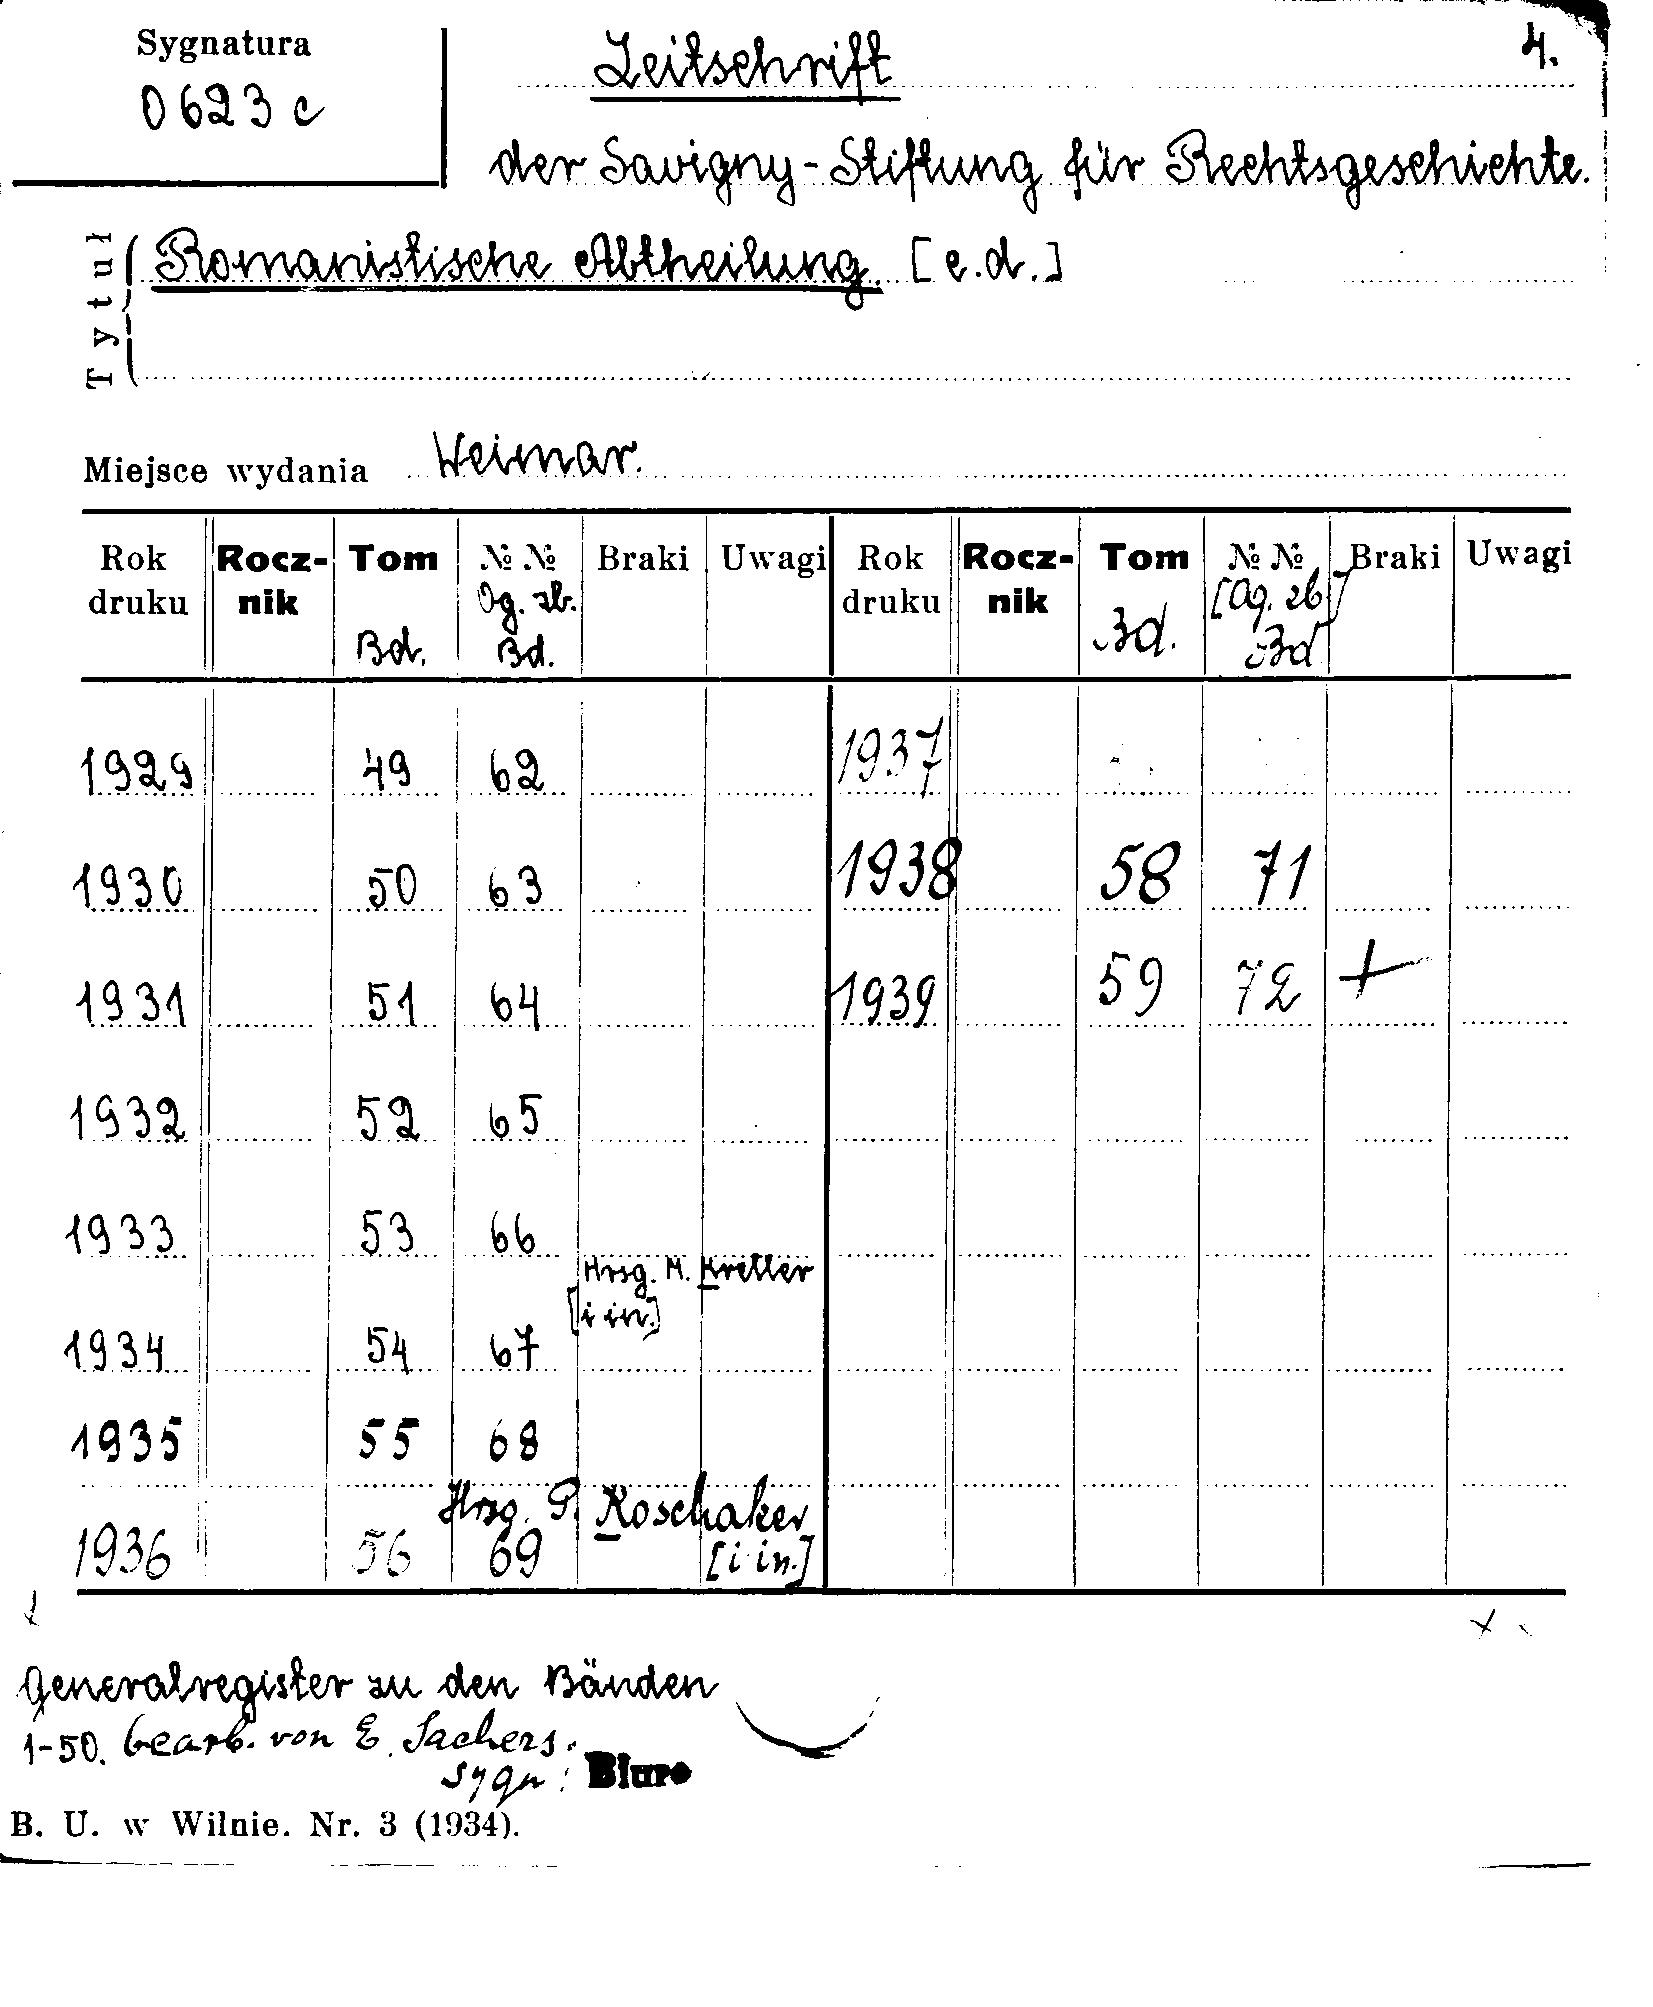 Sygnatura
0623 c
4.
Zeitschrift
der Savigny-Stiftung für Rechtsgeschichte.
Tytuł
Romanistische Abtheilung. [c.d.]
Miejsce wydania Weimar.
Rok druku Rocz-nik Tom Bd. №№ Og. zb. Bd. Braki Uwagi Rok druku Rocz-nik Tom Bd. №№ [Og. zb] Bd Braki Uwagi
1929 49 62 1937
1930 50 63 1938 58 71
1931 51 64 1939 59 72 +
1932 52 65
1933 53 66
Hrsg. H. Kreller
[i in.]
1934 54 67
1935 55 68
Hrsg. P. Koschaker
1936 56 69 [i in.]
Generalregister zu den Bänden
1-50. bearb. von E. Sachers.
sygn: Biuro
B. U. w Wilnie. Nr. 3 (1934).